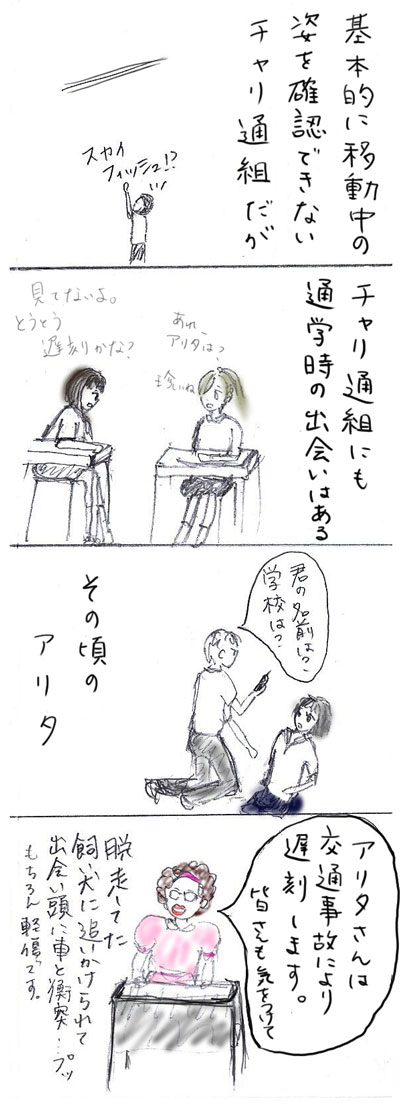 基本的に移動中の
姿を確認できない
チャリ通組だが
スカイ
フィッシュ!?
チャリ通組にも
通学時の出会いはある
あれ、
アリタは?
珍しいね
見てないよ。
とうとう
遅刻かな?
君の名前は?
学校は?
その頃の
アリタ
アリタさんは
交通事故により
遅刻します。
皆さんも気をつけて
脱走してた
飼い犬に追いかけられて
出会い頭に車と衝突…プッ
もちろん軽傷です。